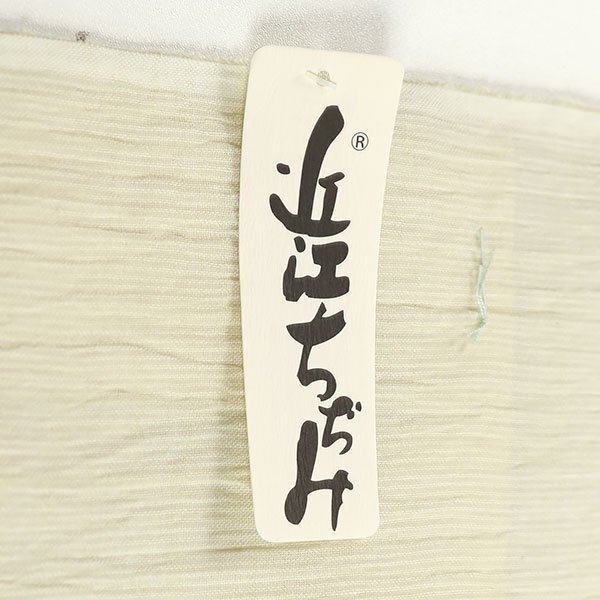 近江ちぢみ
®